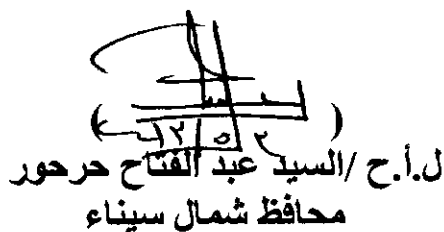 ل.أ.ح /السيد عبد الفتاح حرحور
محافظ شمال سيناء